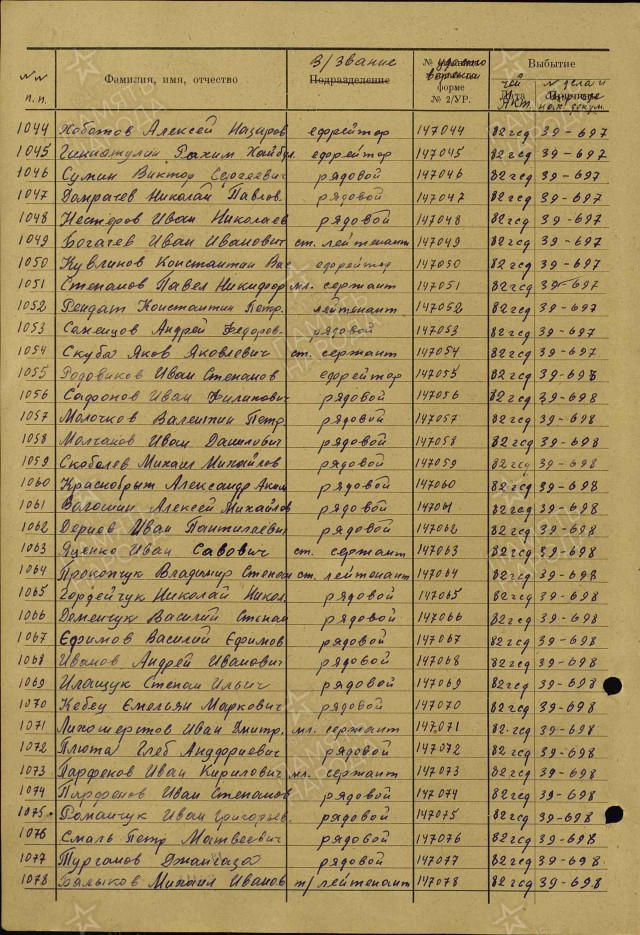 №№ п.п. Фамилия, имя, отчество В/Звание Подразделение № удосто верения форме № 2/УР. Выбытие
чей Дата Акт. № дела и
1044 Хоботов Алексей Назаров ефрейтор 147044 82 гсд 39-697
1045 Рахим ефрейтор 147045 82 гсд 39-697
1046 Сумин Виктор Сергеевич рядовой 147046 82 гсд 39-697
1047 Домрачев Николай Павлов. рядовой 147047 82 гсд 39-697
1048 Нестеров Иван Николаев рядовой 147048 82 гсд 39-697
1049 Богачев Иван Иванович ст. лейтенант 147049 82 гсд 39-697
1050 Кувлинов Константин Вас ефрейтор 147050 82 гсд 39-697
1051 Степанов Павел Никифор мл. сержант 147051 82 гсд 39-697
1052 Константин Петр. лейтенант 147052 82 гсд 39-697
1053 Саженцов Андрей Федоров- рядовой 147053 82 гсд 39-697
1054 Скуба Яков Яковлевич ст. сержант 147054 82 гсд 39-697
1055 Родовиков Иван Степанов ефрейтор 147055 82 гсд 39-698
1056 Сафонов Иван Филипович рядовой 147056 82 гсд 39-698
1057 Молочков Валентин Петр. рядовой 147057 82 гсд 39-698
1058 Молчанов Иван Данилович рядовой 147058 82 гсд 39-698
1059 Скоболев Михаил Михайлов рядовой 147059 82 гсд 39-698
1060 Краснобрыж Александр Аким рядовой 147060 82 гсд 39-698
1061 Волошин Алексей Михайлов рядовой 147061 82 гсд 39-698
1062 Дериев Иван Пантилаевич рядовой 147062 82 гсд 39-698
1063 Яценко Иван Савович ст. сержант 147063 82 гсд 39-698
1064 Прокопчук Владимир Степан ст. лейтенант 147064 82 гсд 39-698
1065 Гордейчук Николай Никол. рядовой 147065 82 гсд 39-698
1066 Демчук Василий Степан рядовой 147066 82 гсд 39-698
1067 Ефимов Василий Ефимов рядовой 147067 82 гсд 39-698
1068 Иванов Андрей Иванович рядовой 147068 82 гсд 39-698
1069 Илащук Степан Ильич рядовой 147069 82 гсд 39-698
1070 Кебец Емельян Маркович рядовой 147070 82 гсд 39-698
1071 Лихошерстов Иван Дмитр. мл. сержант 147071 82 гсд 39-698
1072 Плюта Глеб Андфриевич рядовой 147072 82 гсд 39-698
1073 Парфенов Иван Кирилович мл. сержант 147073 82 гсд 39-698
1074 Парфенов Иван Степанов рядовой 147074 82 гсд 39-698
1075 Романчук Иван Григорьев. рядовой 147075 82 гсд 39-698
1076 Смаль Петр Матвеевич рядовой 147076 82 гсд 39-698
1077 Турганов рядовой 147077 82 гсд 39-698
1078 Балыков Михаил Иванов т/лейтенант 147078 82 гсд 39-698